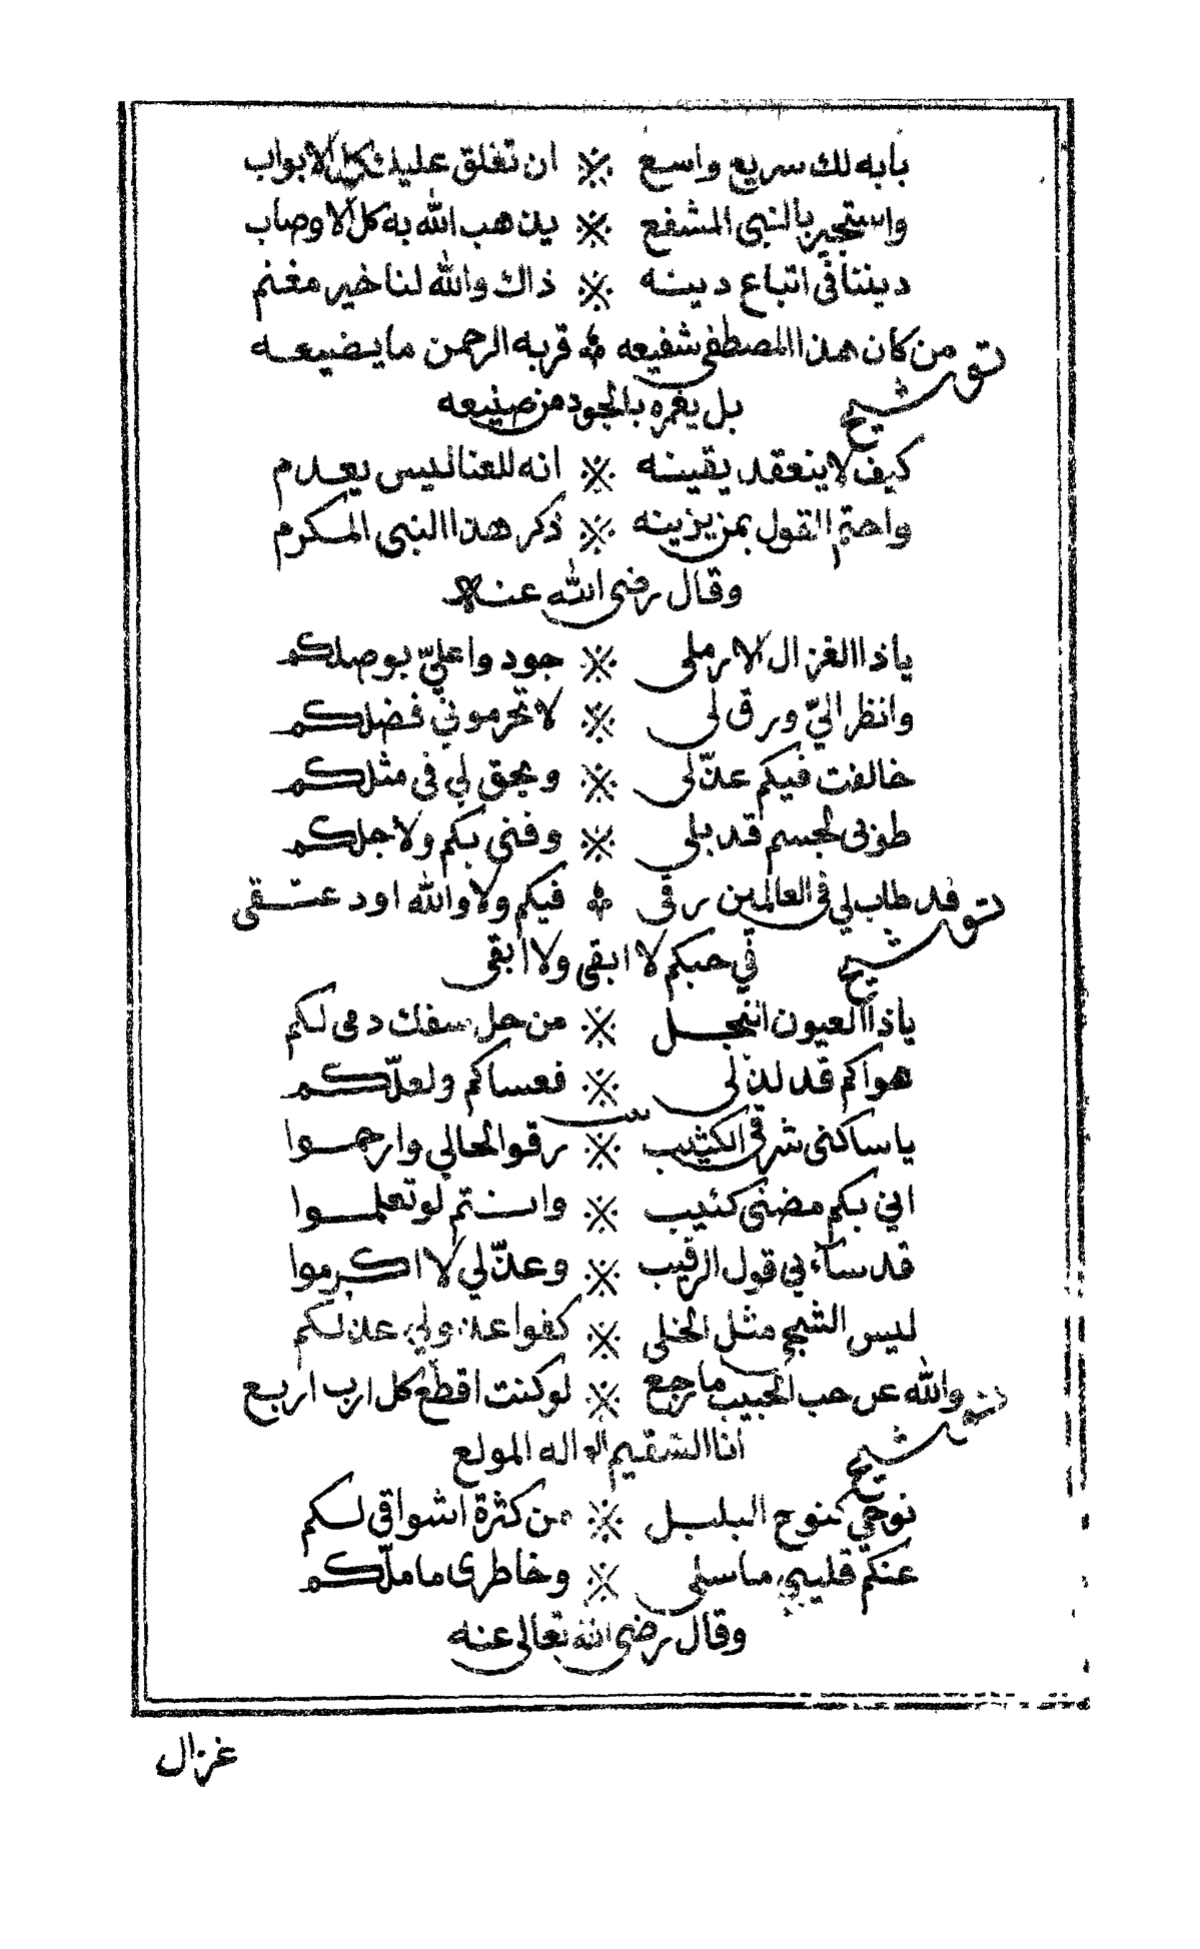 بابه لك سريع واسع ※ ان تغلق عليك كل الابواب
واستجير بالنبي المشفع ※ يذهب الله به كل الاوصاب
ديننا في اتباع دينه ※ ذاك والله لنا خير مغنم
توشيح من كان هذا المصطفى شفيعه ؞ قربه الرحمن ما يضيعه
بل يغمره بالجود من صنيعه
كيف لا ينعقد يقينه ※ انه للعنا ليس يعدم
واحتم القول بمن يزينه ※ ذكر هذا النبي المكرم
وقال رضى الله عنه
ياذا الغزال الارملى ※ جودوا عليّ بوصلكم
وانظر اليّ ورق لى ※ لا تحرموني فضلكم
خالفت فيكم عذّلى ※ ويحق لي في مثلكم
طوبى لجسم قد بلى ※ وفنى بكم ولاجلكم
توشيح قد طاب لي فى العالمين رقى ؞ فيكم ولا والله اود عتقى
في حبكم لا ابقى ولا ابقى
ياذا العيون النجل ※ من حل سفك دمى لكم
هواكم قد لذ لى ※ فعساكم ولعلّكم
يا ساكنى شرقى الكثيب ※ رقوا لحالي وارحموا
اني بكم مضنى كئيب ※ وانتم لو تعلموا
قد ساء بي قول الرقيب ※ وعذّلي لا اكرموا
ليس الشجي مثل الخلى ※ كفوا عذولي عذلكم
توشيح والله عن حب الحبيب ما رجع ※ لو كنت اقطع كل ارب اربع
انا السقيم الواله المولع
نوحي كنوح البلبل ※ من كثرة اشواقى لكم
عنكم قليبي ما سلى ※ وخاطرى ما ملّكم
وقال رضى الله تعالى عنه
غزال